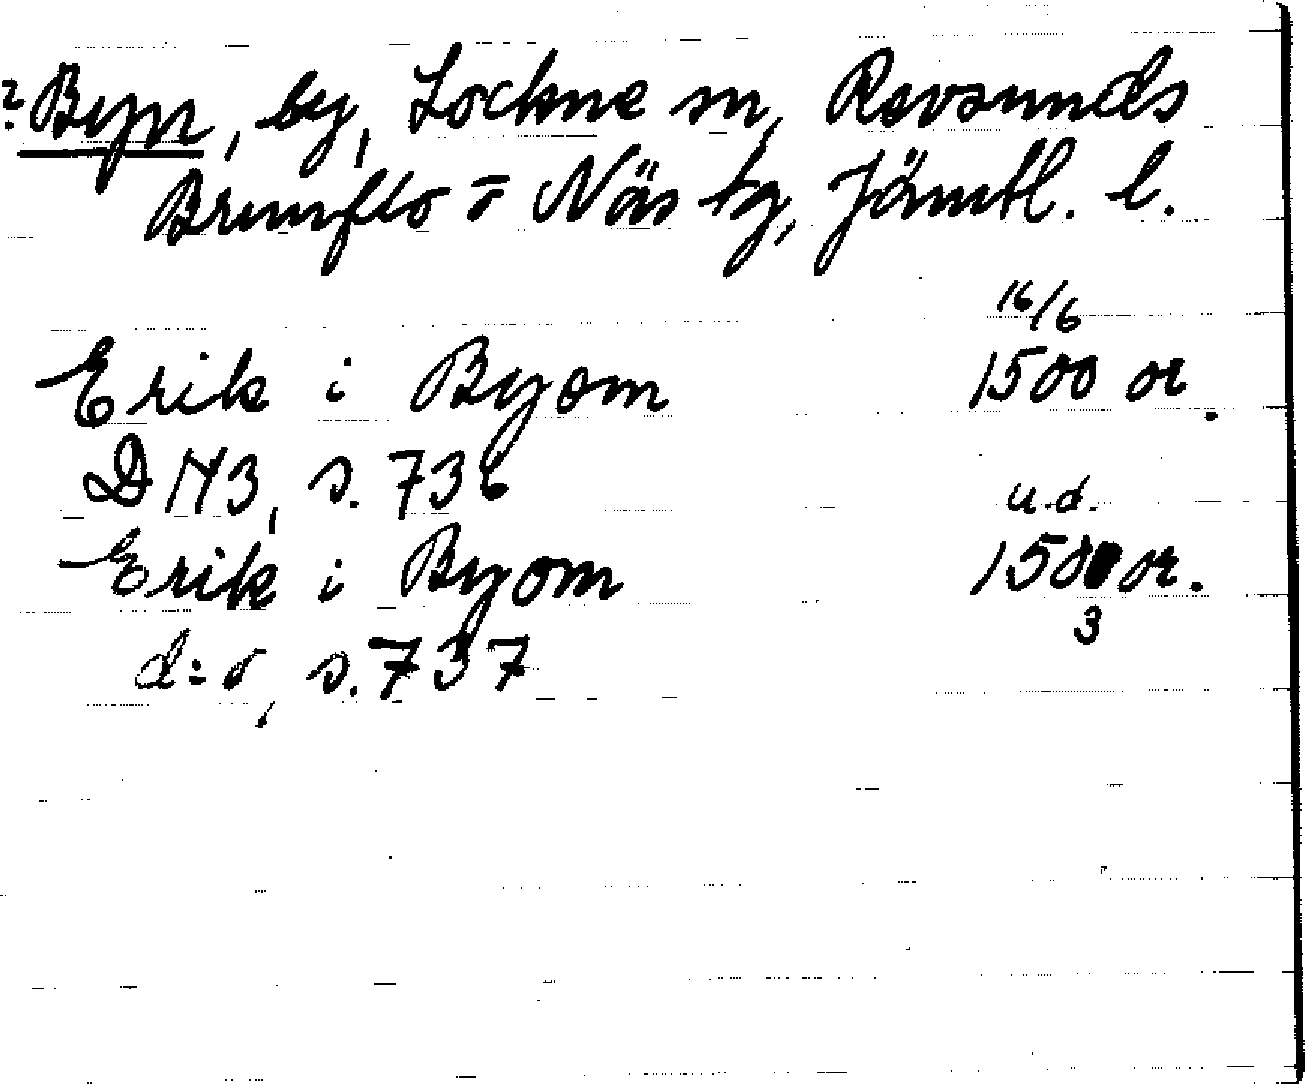 ? Byn, by, Lockne sn, Revsunds
Brunflo o Näs tg, Jämtl. l.
16/6
Erik i Byom 1500 or.
D 143, s. 736
u.d.
Erik i Byom 150 or.
3
d:o, s. 737